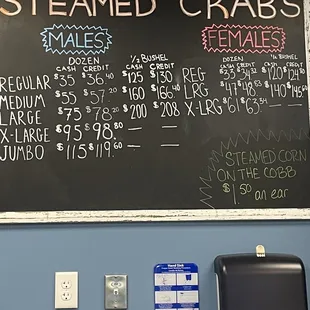 STEAMED CRABS
MALES
DOZEN 1/2 BUSHEL
CASH CREDIT CASH CREDIT
REGULAR $35 $36.40 $125 $130
MEDIUM $55 $57.20 $160 $166.40
LARGE $75 $78 $200 $208
X-LARGE $95 $98.80 — —
JUMBO $115 $119.60 — —
FEMALES
DOZEN 1/2 BUSHEL
CASH CREDIT CASH CREDIT
REG $33 $120
LRG $47 $140 $145.60
X-LRG $61 — —
STEAMED CORN
ON THE COBB
$1.50 an ear
Hand Sink